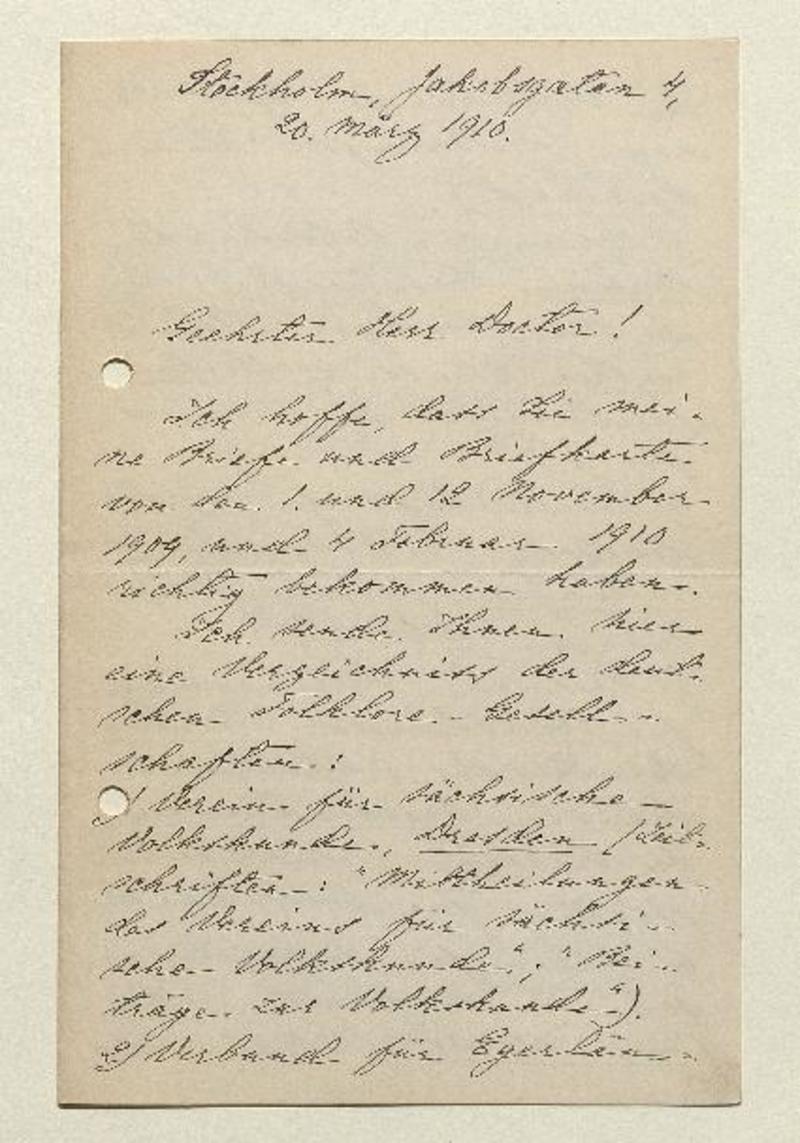 Stockholm, Jakobsgatan 4,
20. März 1910.
Geehrter Herr Doctor!
Ich hoffe, dass Sie mei-
ne Briefe und Briefkarte
von den 1. und 12 November
1909, und 4 Februar 1910
richtig bekommen haben.
Ich sende Ihnen hier
eine Verzeichniss der deut-
schen Folklore-Gesell-
schaften:
1) Verein für sächsische
Volkskunde, Dresden (Zeit-
schriften: "Mittheilungen
des Vereins für sächsi-
sche Volkskunde"; "Bei-
träge zur Volkskunde").
2) Verband für Egerlän-